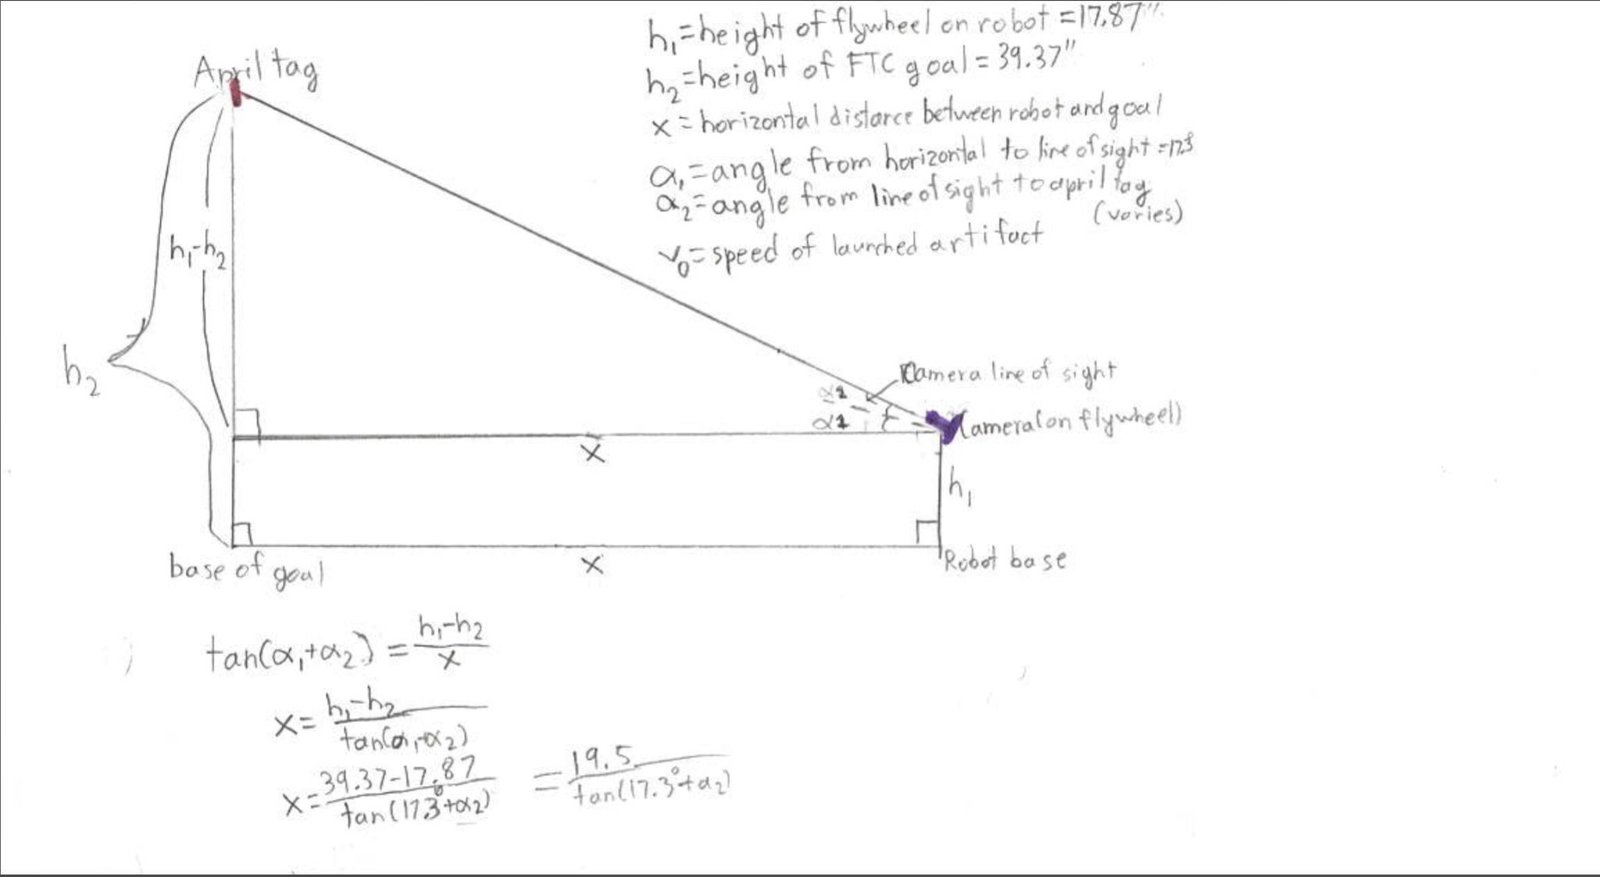 h₁=height of flywheel on robot=17.87"
h₂=height of FTC goal=39.37"
x=horizontal distance between robot and goal
α₁=angle from horizontal to line of sight=17.3
α₂=angle from line of sight to april tag
(varies)
v₀=speed of launched artifact
April tag
h₁-h₂
h₂
Camera line of sight
α2
α2
Camera(on flywheel)
x
h₁
base of goal
x
Robot base
tan(α₁+α₂)=h₁-h₂/x
x=h₁-h₂/tan(α₁+α₂)
x=39.37-17.87/tan(17.3°+α₂) =19.5/tan(17.3°+α₂)